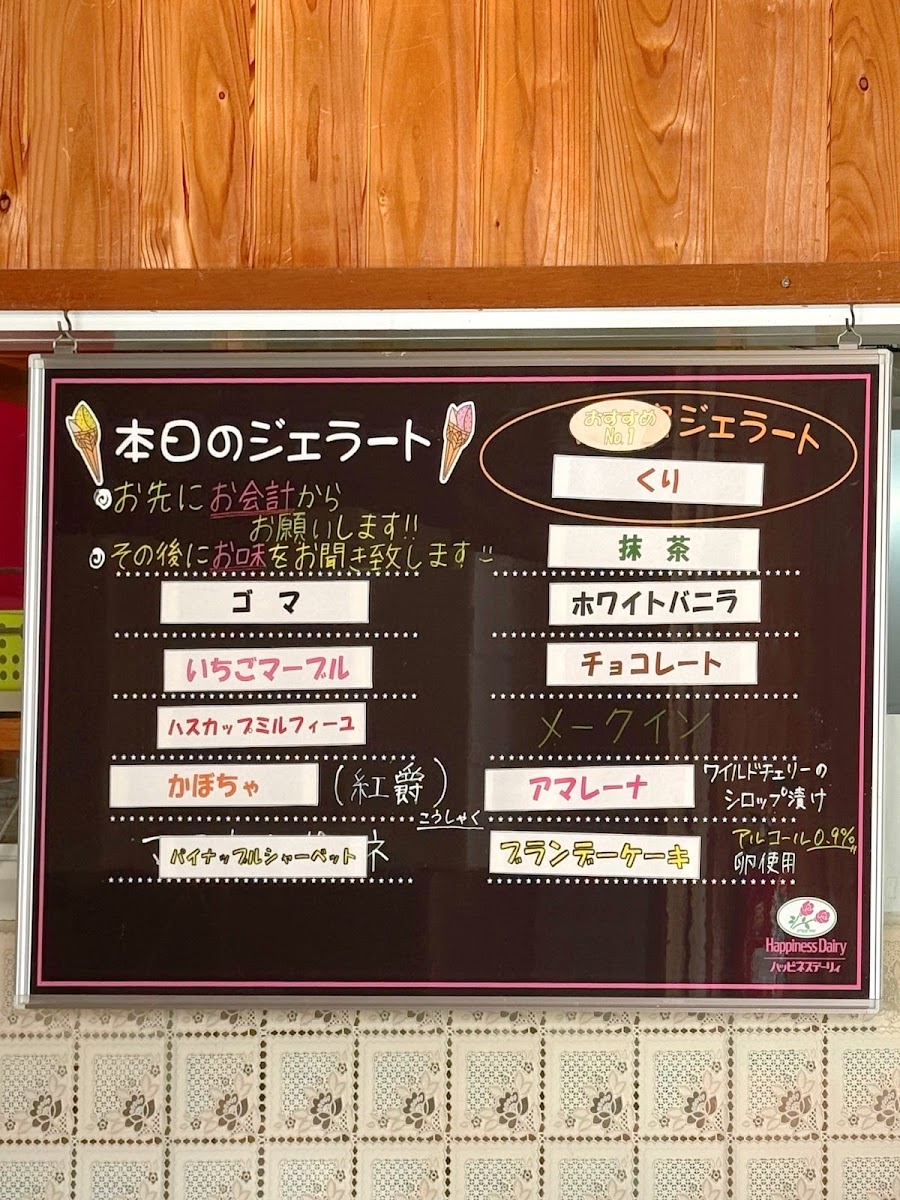 本日のジェラート
お先にお会計から
お願いします!!
その後にお味をお聞き致します!!
ゴマ
いちごマーブル
ハスカップミルフィーユ
かぼちゃ (紅爵)
こうしゃく
パイナップルシャーベット
おすすめ
No.1
ジェラート
くり
抹茶
ホワイトバニラ
チョコレート
メークイン
アマレーナ
ワイルドチェリーの
シロップ漬け
ブランデーケーキ
アルコール0.9%
卵使用
Happiness Dairy
ハッピネスデーリィ